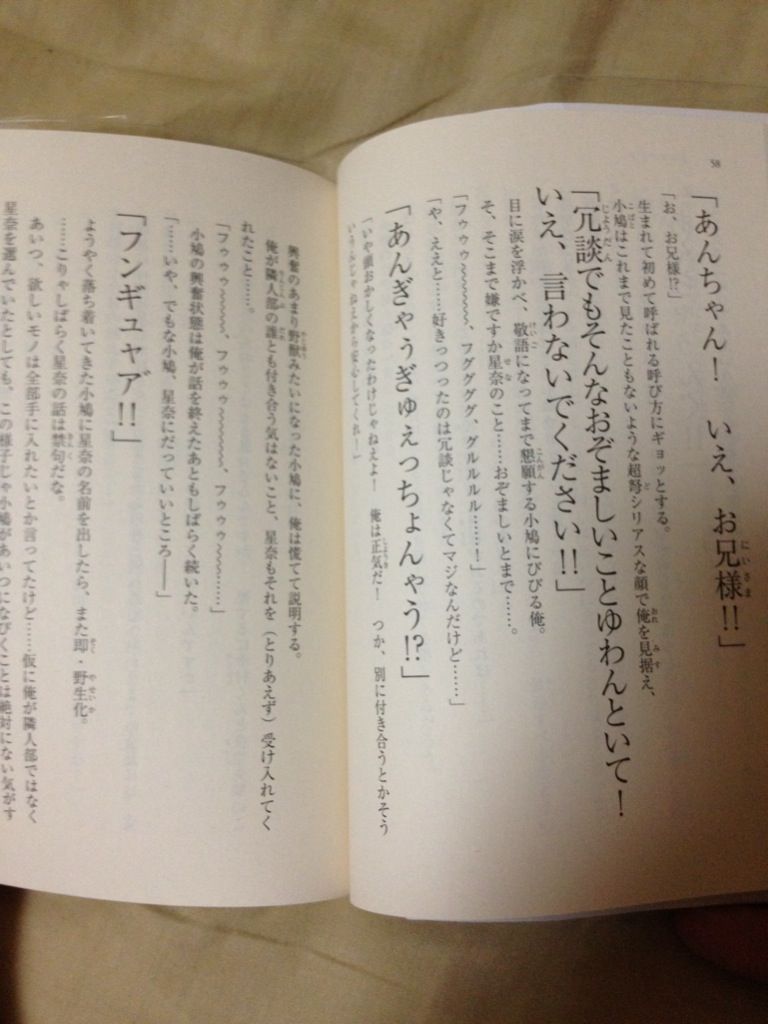 58
「あんちゃん！　いえ、お兄様!!」
「お、お兄様!?」
生まれて初めて呼ばれる呼び方にギョッとする。
小鳩はこれまで見たこともないような超弩シリアスな顔で俺を見据え、
「冗談でもそんなおぞましいことゆわんといて！
いえ、言わないでください!!」
目に涙を浮かべ、敬語になってまで懇願する小鳩にびびる俺。
そ、そこまで嫌ですか星奈のこと……おぞましいとまで……。
「フゥゥゥ〜〜〜〜〜、フグググ、グルルルル……！」
「や、ええと……好きっつったのは冗談じゃなくてマジなんだけど……」
「あんぎゃうぎゅえっちょんゃう!?」
「いや頭おかしくなったわけじゃねえよ！　俺は正気だ！　つか、別に付き合うとかそう
いうんじゃねえから安心してくれ！」
興奮のあまり野獣みたいになった小鳩に、俺は慌てて説明する。
俺が隣人部の誰とも付き合う気はないこと、星奈もそれを（とりあえず）受け入れてく
れたこと……。
「フゥゥゥ〜〜〜〜〜、フゥゥゥ〜〜〜〜〜、フゥゥゥ〜〜〜……」
小鳩の興奮状態は俺が話を終えたあともしばらく続いた。
「……いや、でもな小鳩、星奈にだっていいところ――」
「フンギュャア゛!!」
ようやく落ち着いてきた小鳩に星奈の名前を出したら、また即・野生化。
……こりゃしばらく星奈の話は禁句だな。
あいつ、欲しいモノは全部手に入れたいとか言ってたけど……仮に俺が隣人部ではなく
星奈を選んでいたとしても、この様子じゃ小鳩があいつになびくことは絶対にない気がす